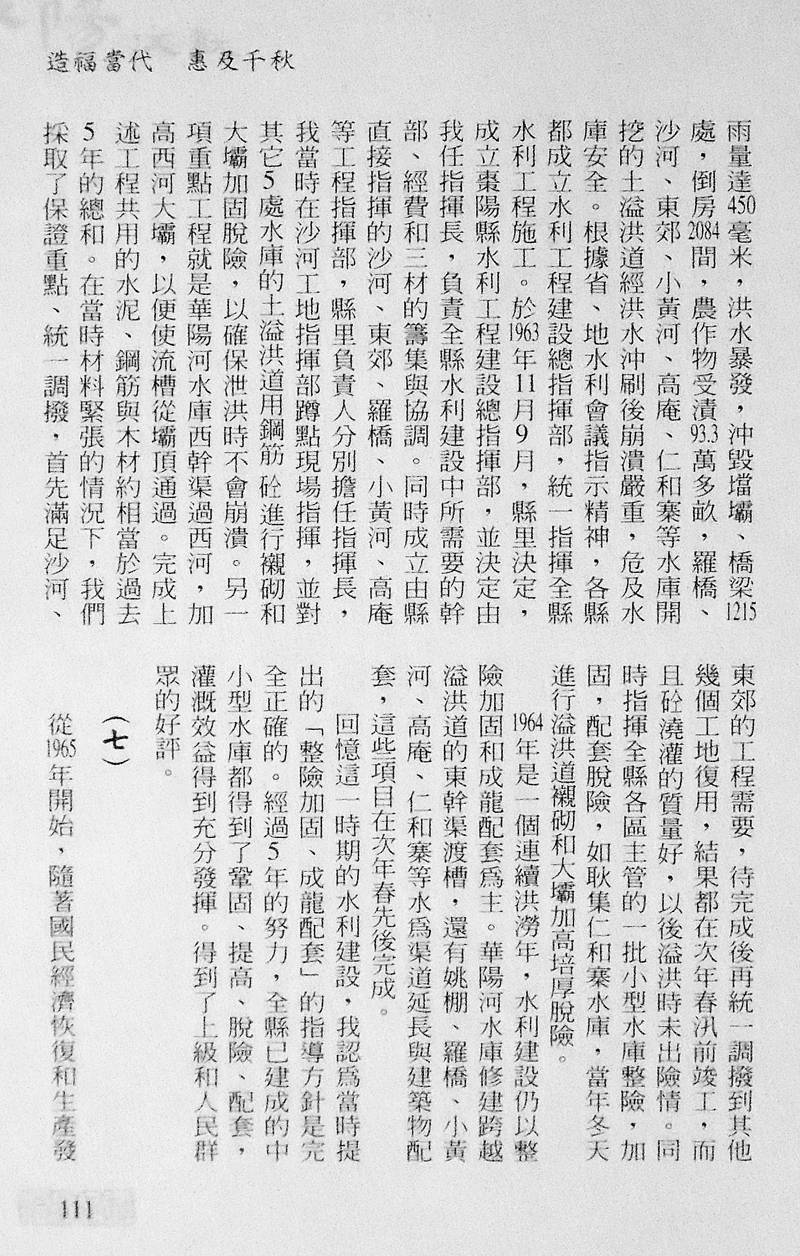 造福當代　惠及千秋
雨量達450毫米，洪水暴發，沖毀壋壩、橋梁1215
處，倒房2084間，農作物受漬93.3萬多畝，羅橋、
沙河、東郊、小黃河、高庵、仁和寨等水庫開
挖的土溢洪道經洪水沖刷後崩潰嚴重，危及水
庫安全。根據省、地水利會議指示精神，各縣
都成立水利工程建設總指揮部，統一指揮全縣
水利工程施工。於1963年11月9月，縣里決定，
成立棗陽縣水利工程建設總指揮部，並決定由
我任指揮長，負責全縣水利建設中所需要的幹
部、經費和三材的籌集與協調。同時成立由縣
直接指揮的沙河、東郊、羅橋、小黃河、高庵
等工程指揮部，縣里負責人分別擔任指揮長，
我當時在沙河工地指揮部蹲點現場指揮，並對
其它5處水庫的土溢洪道用鋼筋砼進行襯砌和
大壩加固脫險，以確保泄洪時不會崩潰。另一
項重點工程就是華陽河水庫西幹渠過西河，加
高西河大壩，以便使流槽從壩頂通過。完成上
述工程共用的水泥、鋼筋與木材約相當於過去
5年的總和。在當時材料緊張的情況下，我們
採取了保證重點、統一調撥，首先滿足沙河、
東郊的工程需要，待完成後再統一調撥到其他
幾個工地復用，結果都在次年春汛前竣工，而
且砼澆灌的質量好，以後溢洪時未出險情。同
時指揮全縣各區主管的一批小型水庫整險，加
固，配套脫險，如耿集仁和寨水庫，當年冬天
進行溢洪道襯砌和大壩加高培厚脫險。
1964年是一個連續洪澇年，水利建設仍以整
險加固和成龍配套爲主。華陽河水庫修建跨越
溢洪道的東幹渠渡槽，還有姚棚、羅橋、小黃
河、高庵、仁和寨等水爲渠道延長與建築物配
套，這些項目在次年春先後完成。
回憶這一時期的水利建設，我認爲當時提
出的「整險加固、成龍配套」的指導方針是完
全正確的。經過5年的努力，全縣已建成的中
小型水庫都得到了鞏固、提高、脫險、配套，
灌溉效益得到充分發揮。得到了上級和人民群
眾的好評。
（七）
從1965年開始，隨著國民經濟恢復和生產發
111